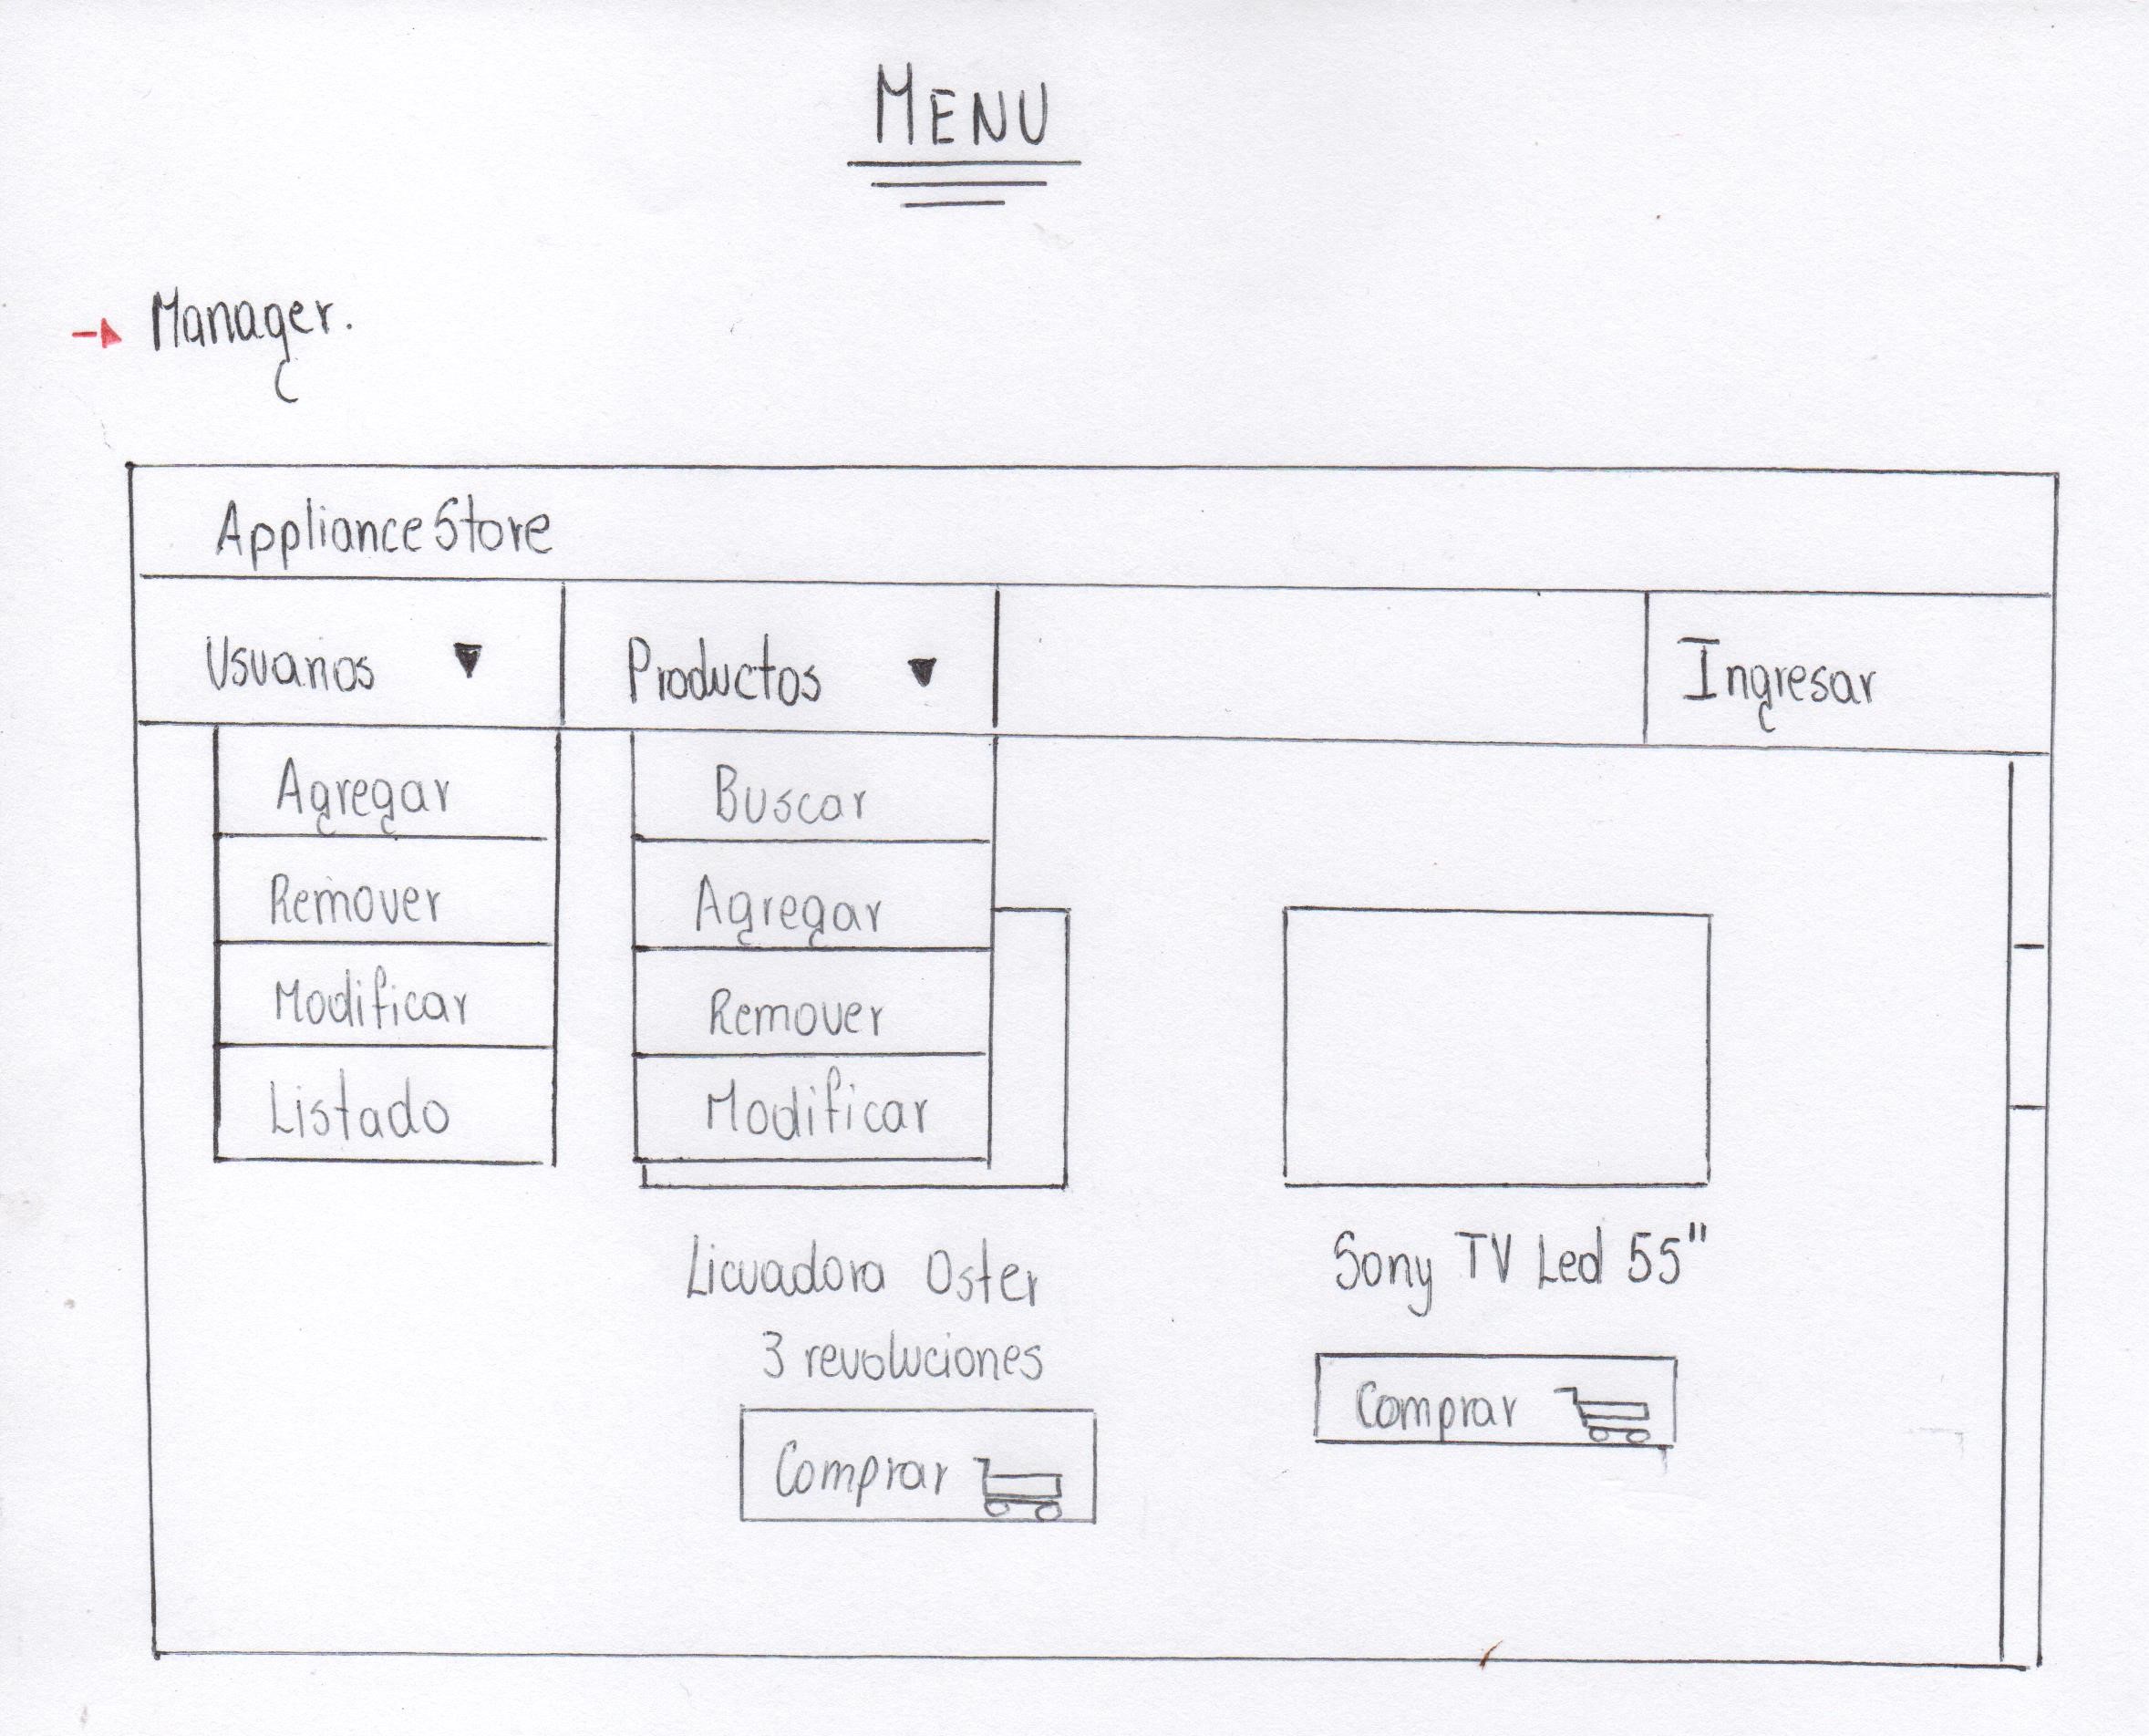 MENU
Manager.
ApplianceStore
Usuarios
Productos
Ingresar
Agregar
Remover
Modificar
Listado
Buscar
Agregar
Remover
Modificar
Licuadora Oster
3 revoluciones
Comprar
Sony TV Led 55"
Comprar